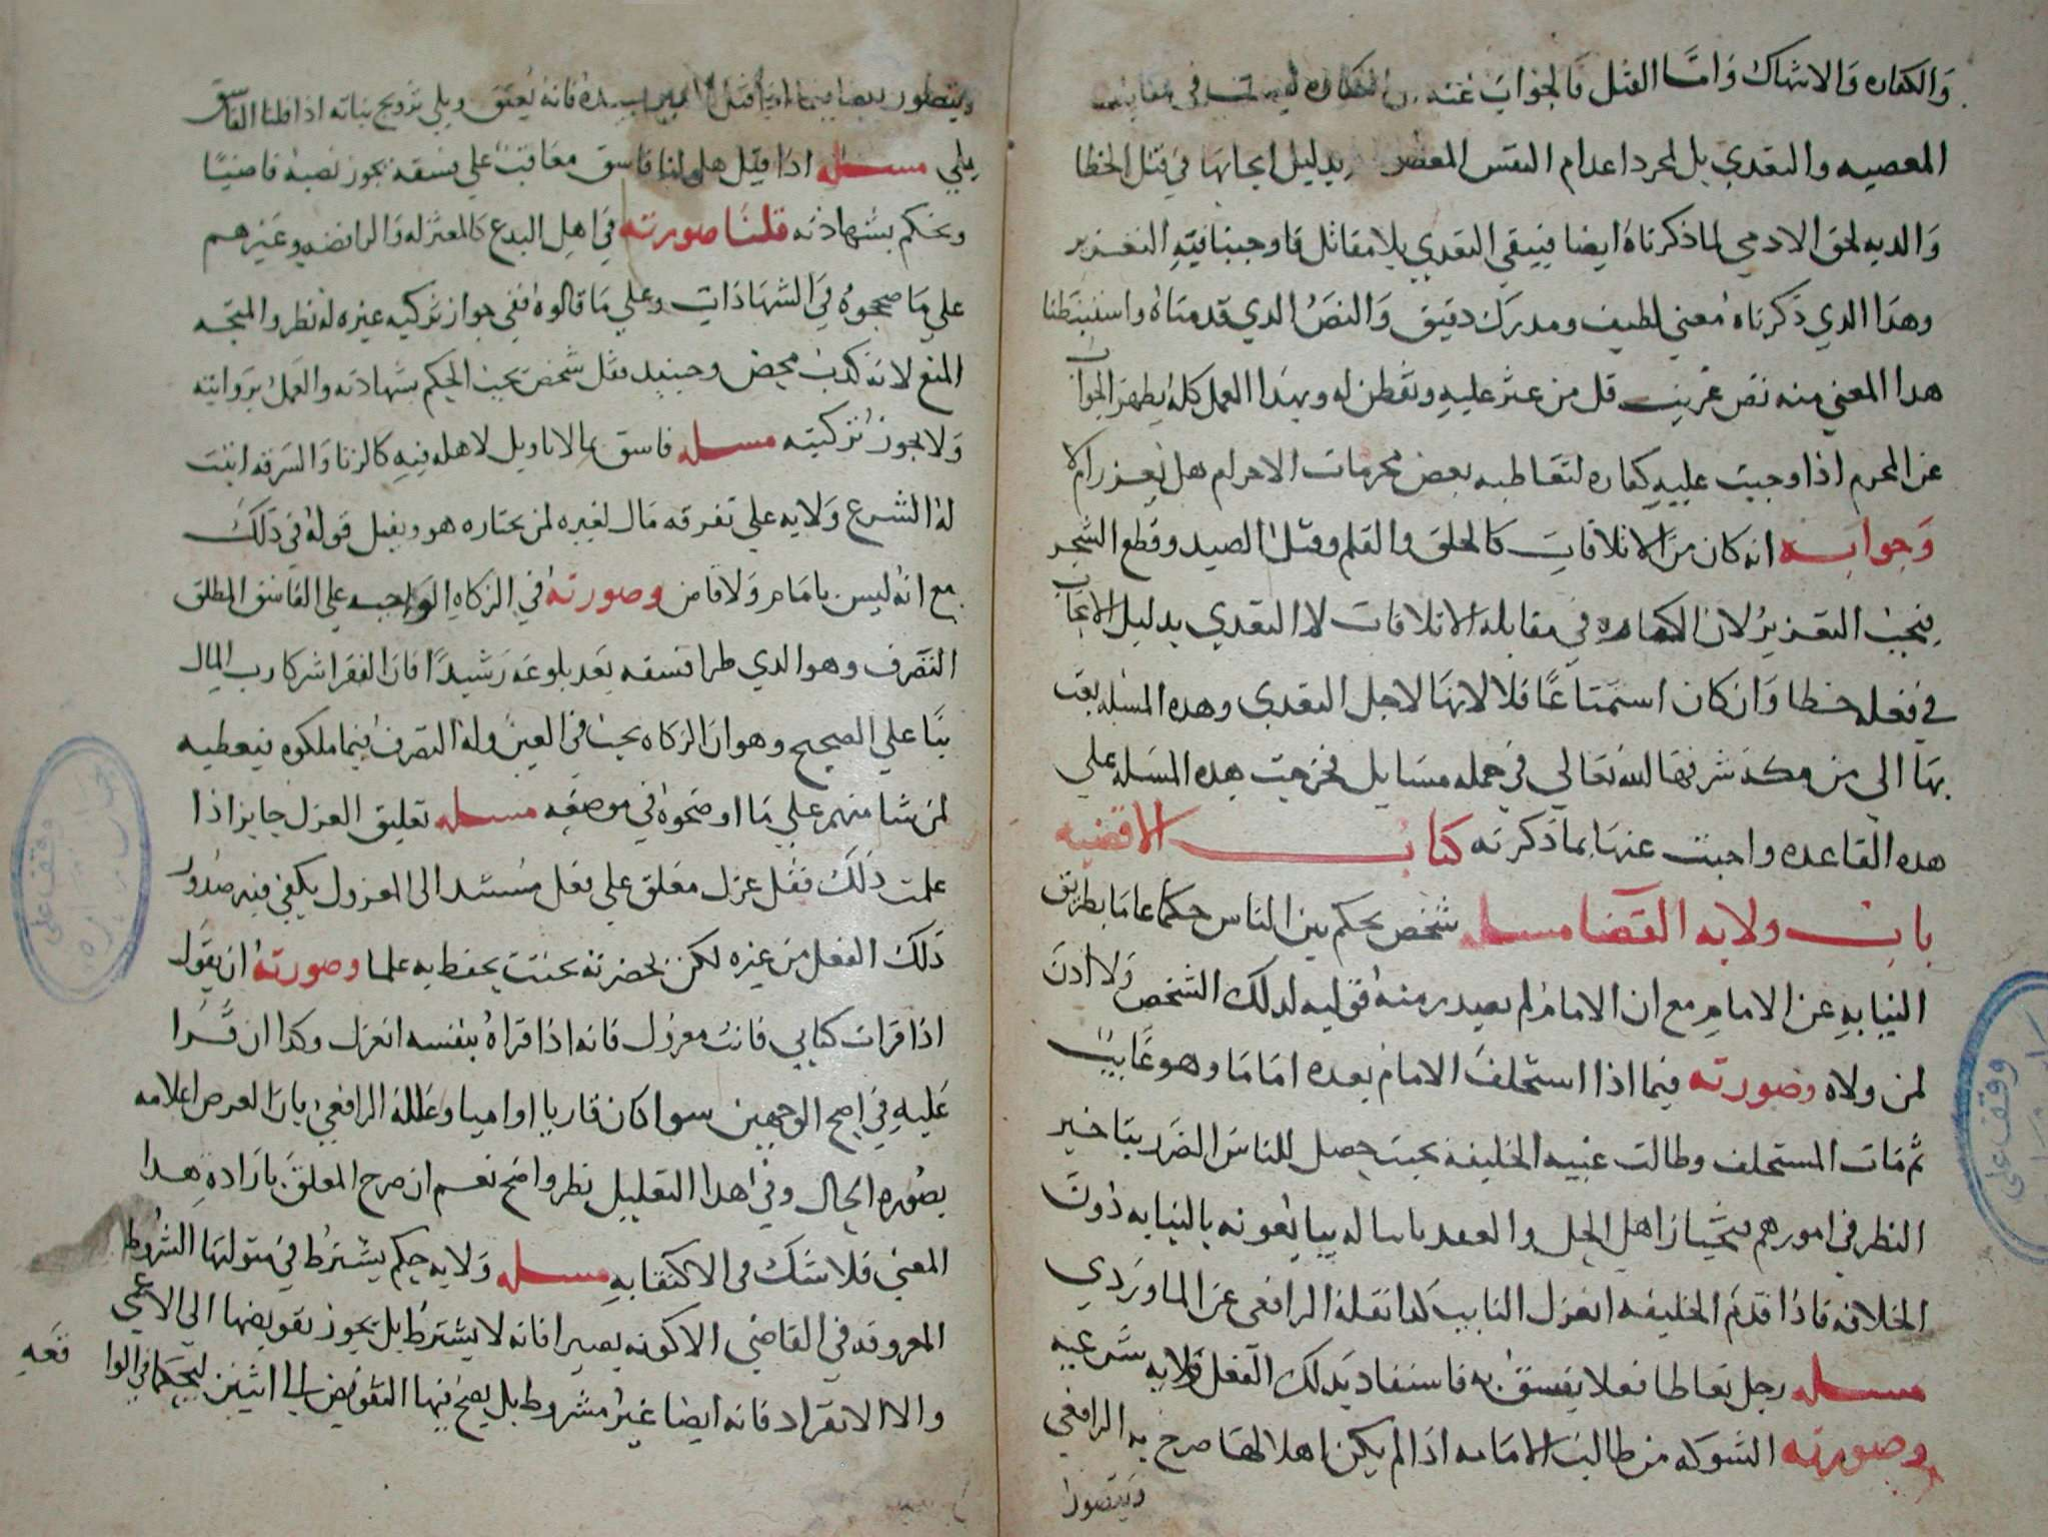 والكفاره والانتهاك واما القتل فالجواب عنه ان الكفاره ليست في مقابله
المعصيه والتعدي بل لمجرد اعدام النفس المعصومه بدليل ايجابها في قتل الخطا
والديه لحق الادمي لما ذكرناه ايضا فيبقي التعدي بلا مقابل فاوجبنا فيه التعزير
وهذا الذي ذكرناه معني لطيف ومدرك دقيق والنص الذي قدمناه واستنبطنا
هذا المعني منه نص غريب قل من عثر عليه وتفطن له وبهذا العمل كله يظهر الجواب
عن المحرم اذا وجبت عليه كفاره لتعاطيه بعض محرمات الاحرام هل يعزر ام لا
وجوابه انه كان من الاتلافات كالحلق والقلم وقتل الصيد وقطع الشجر
فيجب التعزير لان الكفاره في مقابله الاتلافات لا التعدي بدليل الايجاب
في فعله خطا وان كان استمتاعا فلا لانها لاجل التعدي وهذه المسله بعث
بها الي من مكه شرفها الله تعالي في جمله مسايل فخرجت هذه المسله علي
هذه القاعده واجبت عنها بما ذكرته كتاب الاقضيه
باب ولايه القضا مسله شخص يحكم بين الناس حكما عاما بطريق
النيابه عن الامام مع ان الامام لم يصدر منه توليه لذلك الشخص ولا اذن
لمن ولاه وصورته فيما اذا استخلف الامام بعده اماما وهو غايب
ثم مات المستخلف وطالت غيبه الخليفه بحيث حصل للناس الضرر بتاخير
النظر في امورهم فيختار اهل الحل والعقد نايبا له يبايعونه بالنيابه دون
الخلافه فاذا قدم الخليفه انعزل النايب كذا نقله الرافعي عن الماوردي
مسله رجل تعاطا فعلا يفسق به فاستفاد بذلك الفعل ولايه شرعيه
وصورته الشوكه من طالب الامامه اذا لم يكن اهلا لها صرح به الرافعي
ويتصور
ويتصور ايضا فيما اذا قتل سيده فانه يعتق ويلي تزويج بناته اذا قلنا الفاسق
يلي مسله اذا قيل هل لنا فاسق معاقب علي فسقه يجوز نصبه قاضيا
ويحكم بشهادته قلنا صورته في اهل البدع كالمعتزله والرافضه وغيرهم
علي ما صححوه في الشهادات وعلي ما قالوه ففي جواز تزكيه غيره له نظر والمتجه
المنع لانه كذب محض وحينيد فقل شخص يجب الحكم بشهادته والعمل بروايته
ولا يجوز تزكيته مسله فاسق بما لا تاويل لاهله فيه كالزنا والسرقه اثبت
له الشرع ولايه علي تفرقه مال لغيره لمن يختاره هو ويقبل قوله في ذلك
مع انه ليس بامام ولا قاض وصورته في الزكاه الواجبه علي الفاسق المطلق
التصرف وهو الذي طرا فسقه بعد بلوغه رشيدا فان الفقرا شركا رب المال
بنا علي الصحيح وهو ان الزكاه يجب في العين وله التصرف فيما ملكوه فيعطيه
لمن شا منهم علي ما اوضحوه في موضعه مسله تعليق العزل جايز اذا
علمت ذلك فقل عزل معلق علي فعل مسند الى المعزول يكفي فيه صدور
ذلك الفعل من غيره لكن بحضرته بحيث يحفظ به علما وصورته ان يقول
اذا قرات كتابي فانت معزول فانه اذا قراه بنفسه انعزل وكذا ان قرا
عليه في اصح الوجهين سوا كان قاريا او اميا وعلله الرافعي بان الغرض اعلامه
بصوره الحال وفي هذا التعليل نظر واضح نعم ان صرح المعلق باراده هذا
المعني فلا شك في الاكتفا به مسله ولايه حكم يشترط في متوليها الشروط
المعروفه في القاضي الا كونه بصيرا فانه لا يشترط بل يجوز تفويضها الي الاعمي
والا الانفراد فانه ايضا غير مشروط بل يصح فيها التفويض الي اثنين ليحكما في الوا
قعه
وقف علي
وقف علي